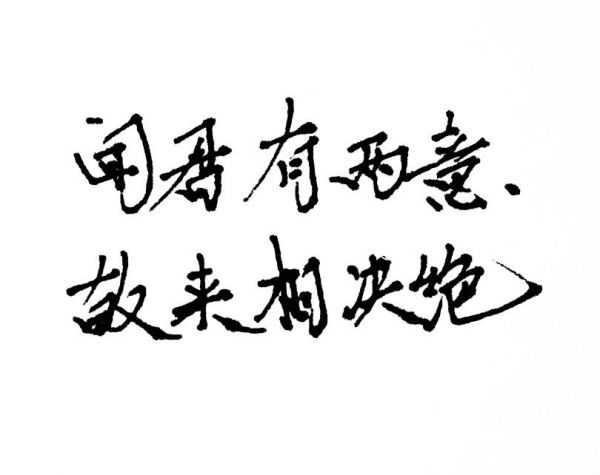 闻君有两意.
故来相决绝